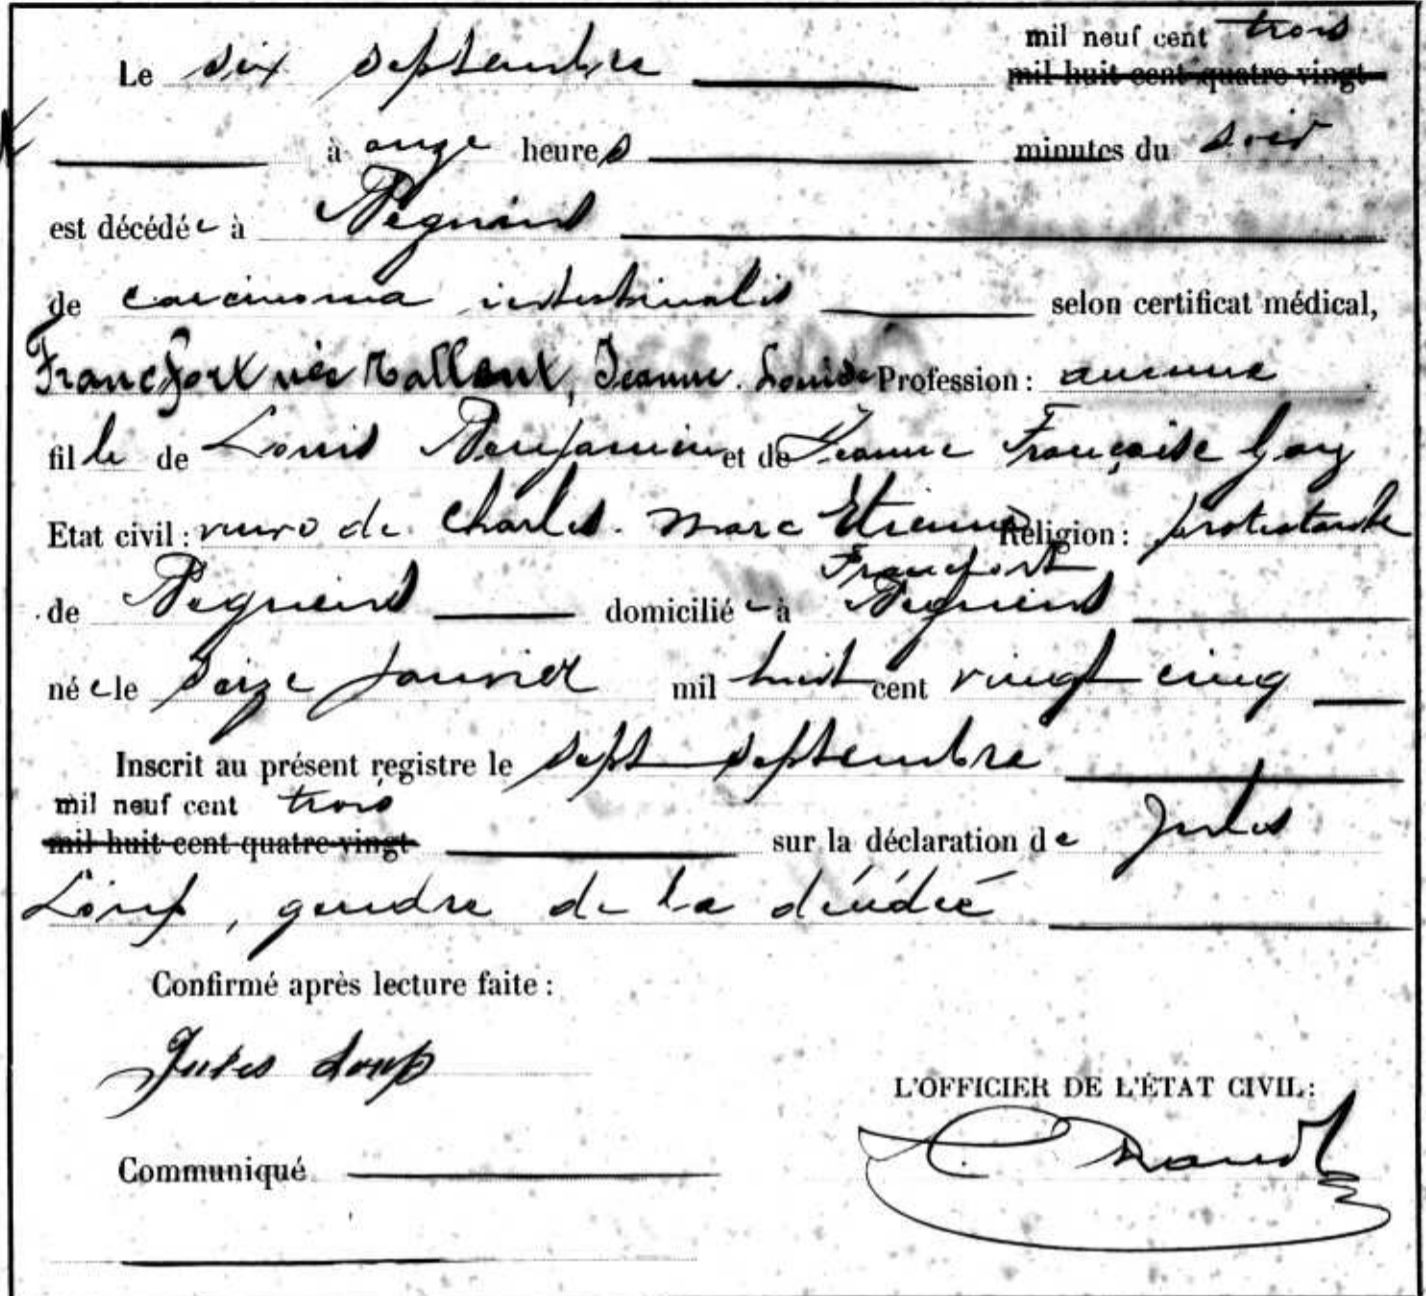 mil neuf cent trois
Le six septembre mil huit cent quatre vingt
à onze heures minutes du soir
est décédée à Begnins
de carcinoma intestinalis selon certificat médical,
Francfort née Tallent, Jeanne. Louise Profession : aucune
fille de Louis Benjamin et de Jeanne Françoise Gay
Etat civil : veuve de Charles. Marc Etienne Religion : protestante
Francfort
de Begnins domiciliée à Begnins
née le seize janvier mil huit cent vingt cinq
Inscrit au présent registre le sept septembre
mil neuf cent trois
mil huit cent quatre vingt sur la déclaration de Jules
Loup, gendre de la décédée
Confirmé après lecture faite :
Jules Loup
L'OFFICIER DE L'ÉTAT CIVIL :
Communiqué